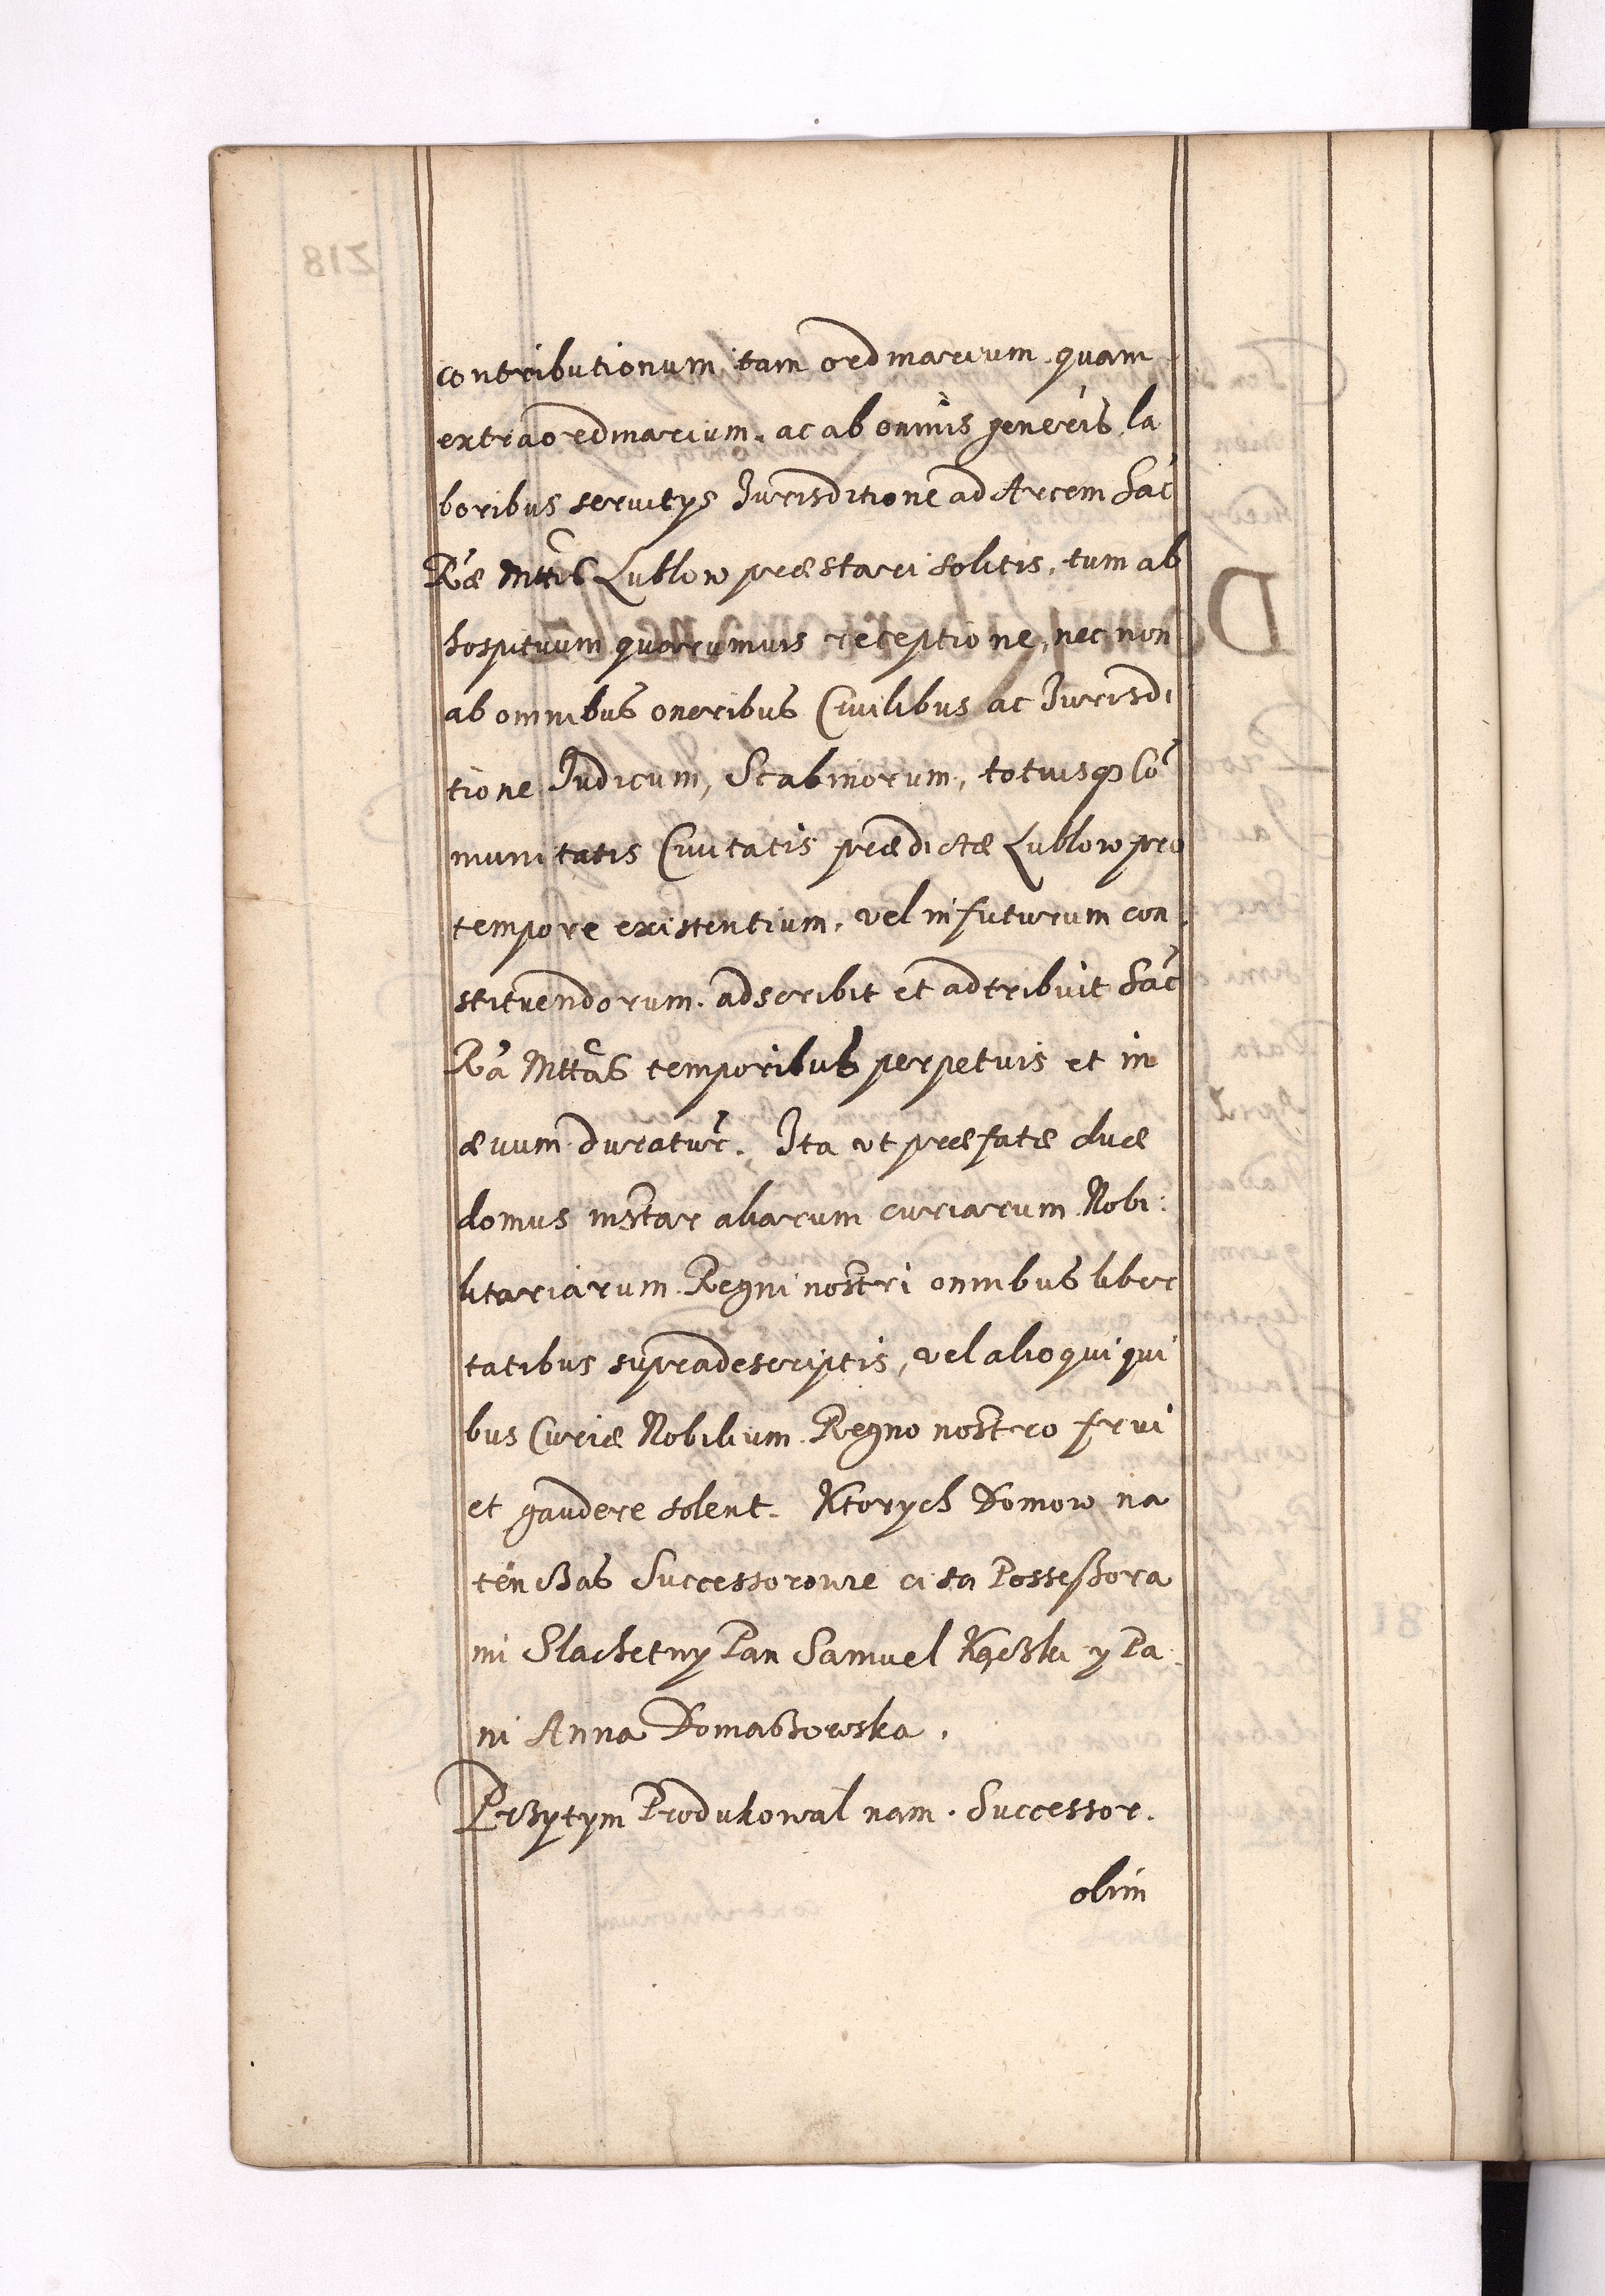 contributionum tam ordinarium quam
extraordinarium. ac ab omnis generis la
boribus servitys Jurisditione ad Arcem Sac
Ræ Mttis Lublow præstari solitis, tum ab
hospituum quorumuis receptione, nec non
ab omnibus oneribus Ciuilibus ac Jurisdi
tione Judicum, Scabinorum, totiusq Co
munitatis Ciuitatis prædictæ Lublow pro
tempore existentium, vel in futurum con
stituendorum. adscribit et adtribuit Sac
Ra Mttas temporibus perpetuis et in
æuum duratur. Ita vt præfatæ duæ
domus instar aliarum curiarum Nobi:
litariarum Regni nostri omnibus liber
tatibus supradescriptis, vel alioqui qui
bus Curiæ Nobilium Regno nostro frui
et gaudere solent. Ktorych Domow na
ten czas Successorowie ci są Possessora
mi Slachetny Pan Samuel y Pa
ni Anna Domaßowska.
Przytym Produkowal nam. Successor.
olim